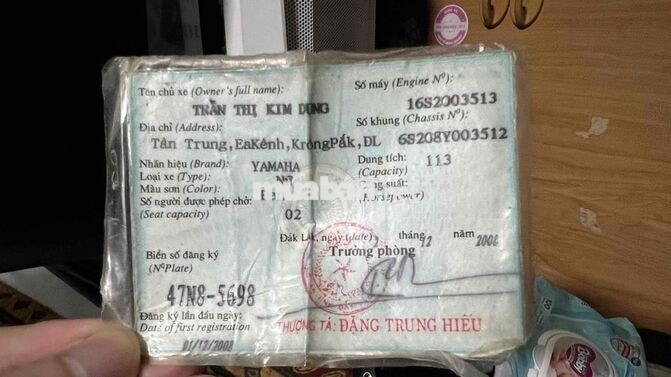 Tên chủ xe (Owner's full name):
TRẦN THỊ KIM DUNG
Địa chỉ (Address):
Tân Trung,EaKênh,KrôngPắk,ĐL
Nhãn hiệu (Brand): YAMAHA
Loại xe (Type):
Màu sơn (Color):
Số người được phép chở: 02
(Seat capacity)
Số máy (Engine Nº):
16S2003513
Số khung (Chassis Nº):
6S208Y003512
Dung tích: 113
(Capacity)
Công suất:
(Horsepower)
Đắk Lắk, ngày (date) tháng 12 năm 2008
Biển số đăng ký
(Nº Plate)
47N8-5698
Đăng ký lần đầu ngày:
Date of first registration
01/12/2008
Trưởng phòng
THƯỢNG TÁ: ĐẶNG TRUNG HIẾU